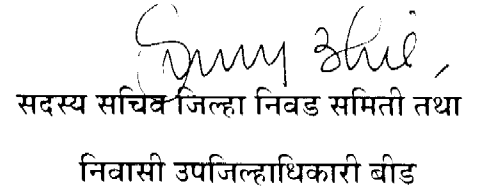 सदस्य सचिव जिल्हा निवड समिती तथा
निवासी उपजिल्हाधिकारी बीड